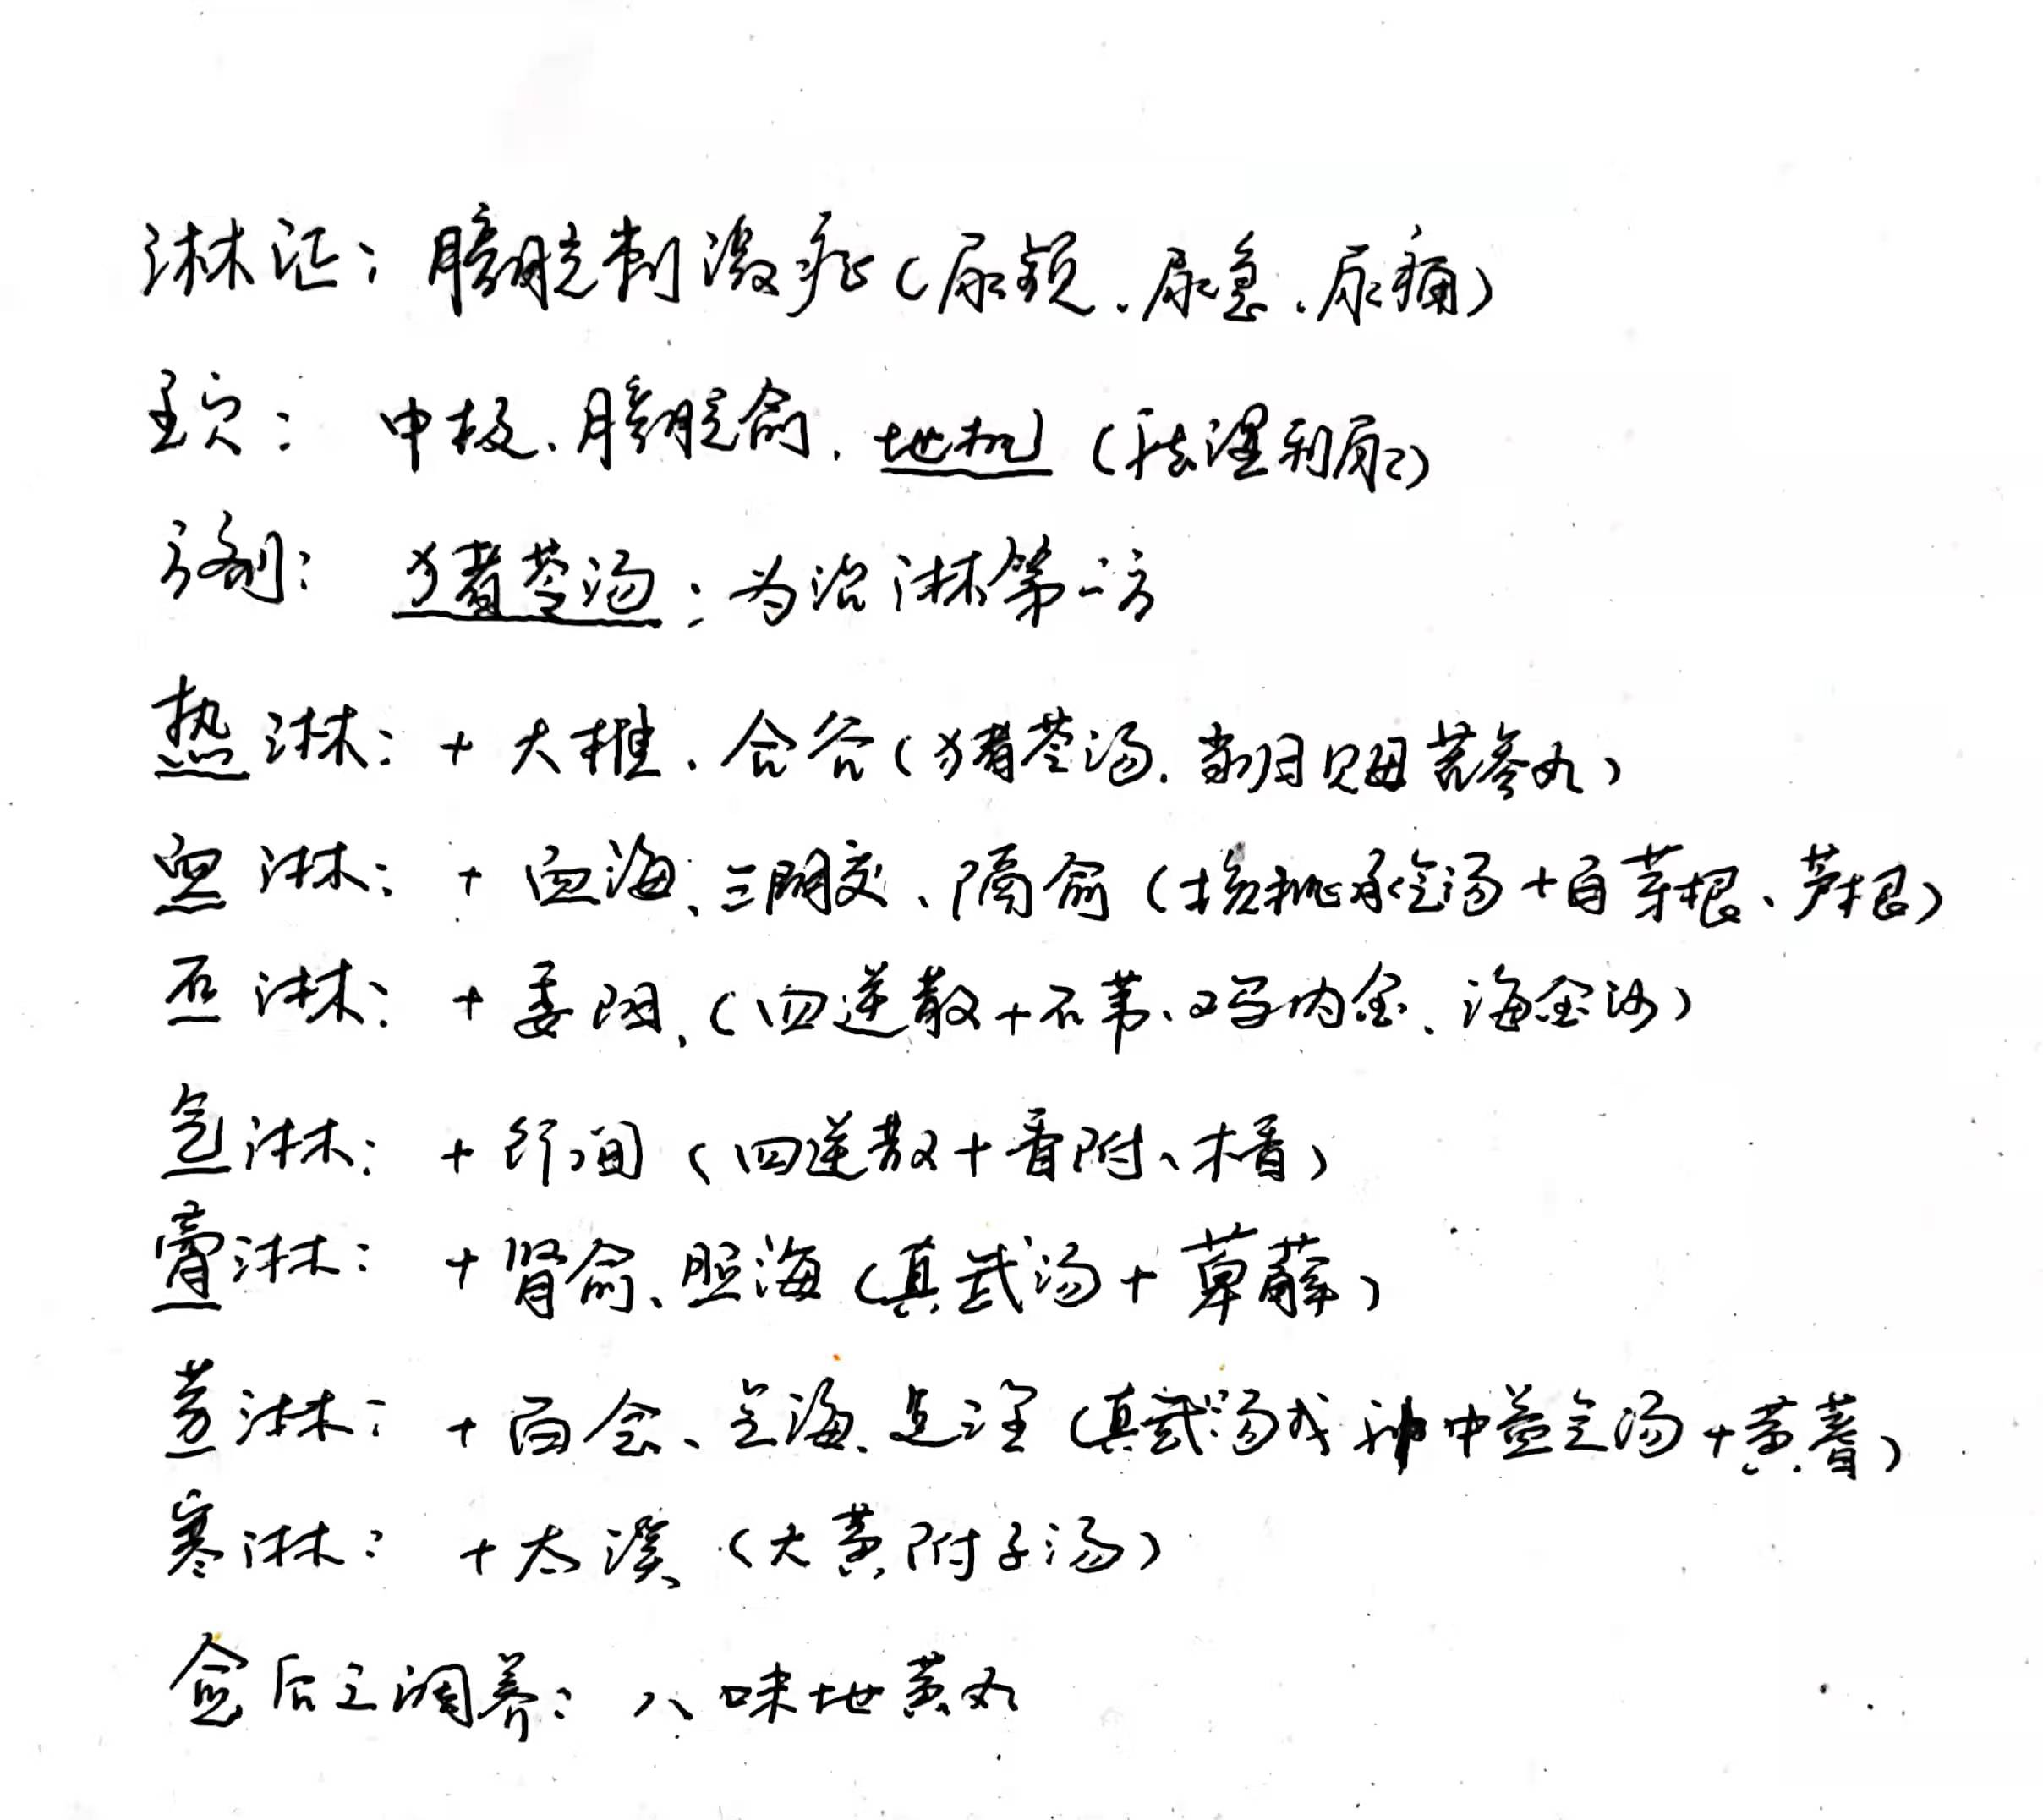 淋证：膀胱刺激症（尿频、尿急、尿痛）
主穴：中极、膀胱俞、地机（祛湿利尿）
方剂：猪苓汤：为治淋第一方
热淋：+大椎、合谷（猪苓汤、当归贝母苦参丸）
血淋：+血海、三阴交、隔俞（核桃承气汤+白茅根、芦根）
石淋：+委阳、（四逆散+石韦、鸡内金、海金沙）
气淋：+行间（四逆散+香附、木香）
膏淋：+肾俞、照海（真武汤+萆薢）
劳淋：+百会、气海、足三里（真武汤或补中益气汤+黄蓍）
寒淋：+太溪（大黄附子汤）
愈后之调养：八味地黄丸